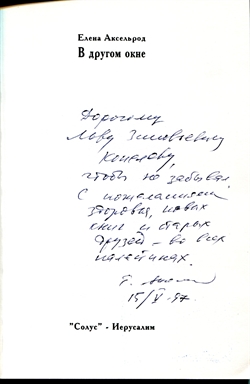 Елена Аксельрод
В другом окне
Дорогому
Льву Зиновьевичу
Копелеву,
чтобы не забывал.
С пожеланием
здоровья, новых
книг и старых
друзей – во всех
палестинах.
15/V-97.
"Солус" - Иерусалим